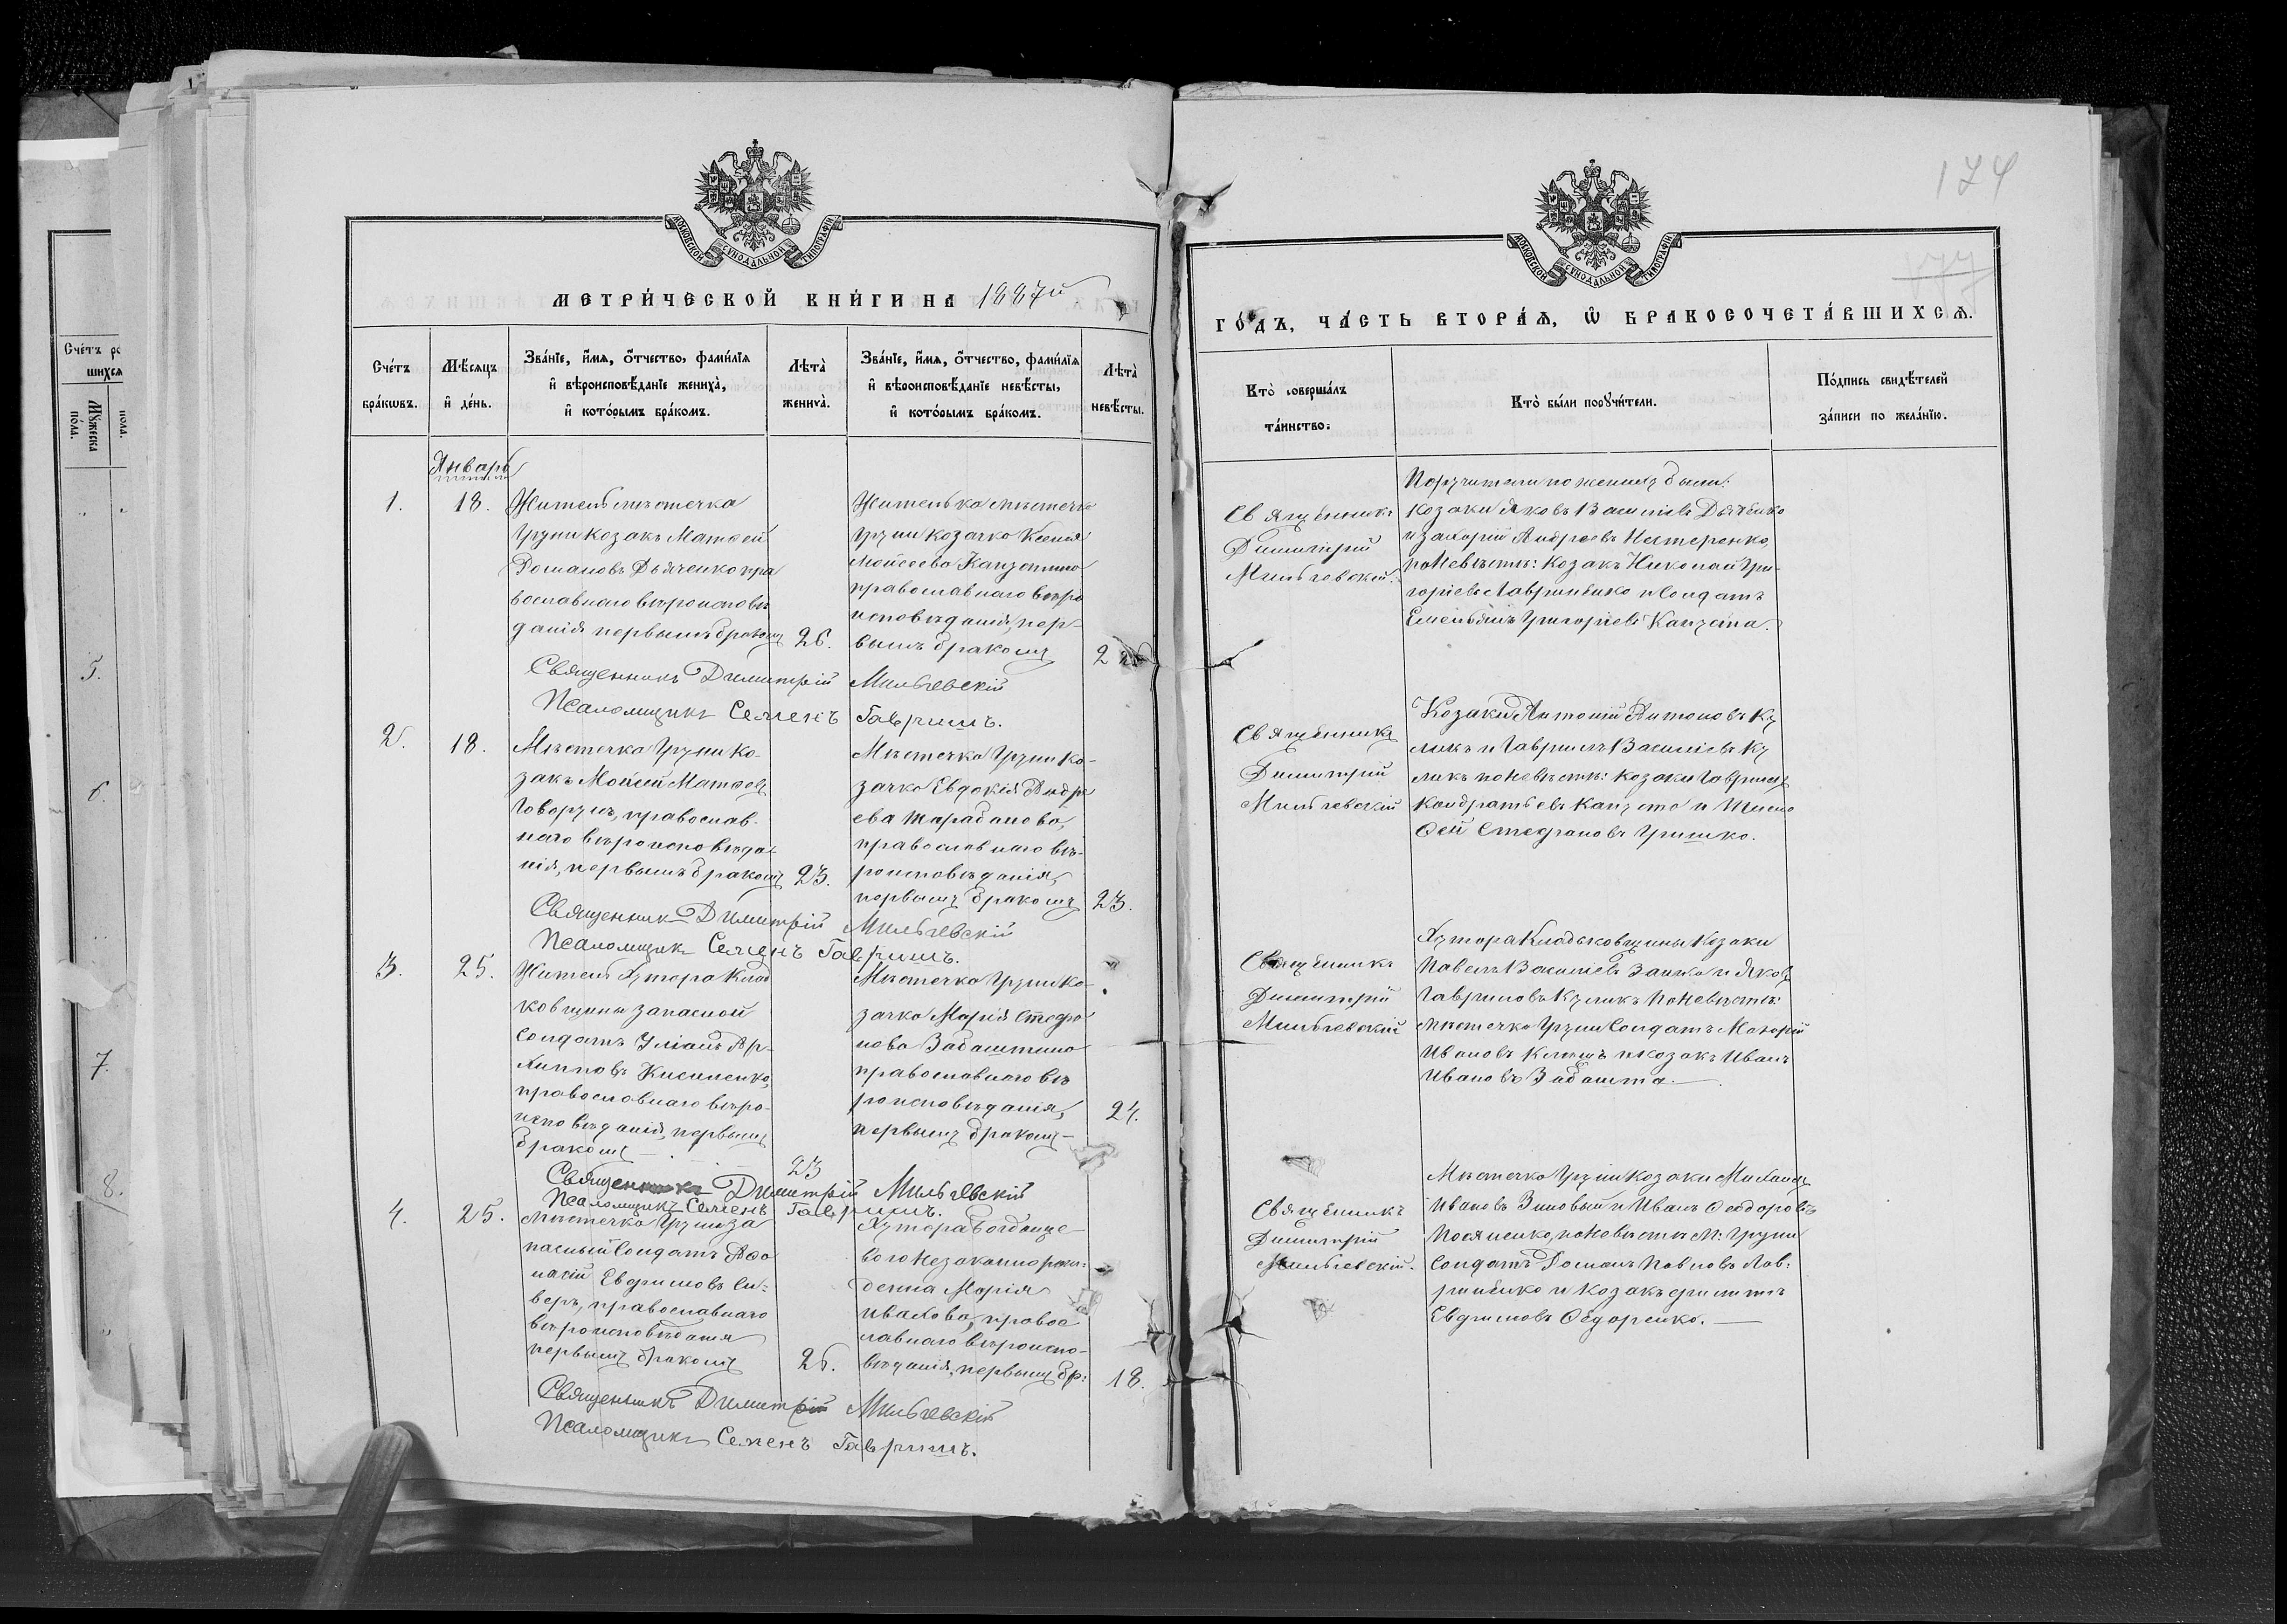 МОСКОВСКОЙ СѴНОДАЛЬНОЙ ТИПОГРАФІИ
МЕТРИ́ЧЕСКОЙ КНИ́ГИ НА 1887й
Сче́тъ бра́кѡвъ.
Мѣ́сяцъ и҆ де́нь.
Зва́нїе, и҆́мѧ, ѻ҆́тчество, фами́лїѧ
и҆ вѣроисповѣ́данїе жениха̀,
и҆ кото́рымъ бра́комъ.
Лѣта̀ жениха̀.
Зва́нїе, и҆́мѧ, ѻ҆́тчество, фами́лїѧ
и҆ вѣроисповѣ́данїе невѣ́сты,
и҆ кото́рымъ бра́комъ.
Лѣта̀ невѣ́сты.
Январь
1.
18.
Житель мѣстечка
Груни козакъ Матѳей
Романовъ Дьяченко пра
вославнаго вѣроисповѣ
данія первымъ бракомъ
26.
Жителька мѣстечка
Груни козачка Ксенія
Моисеева Капустина
православнаго вѣро
исповѣданія, пер-
вымъ бракомъ
Священникъ Димитрій Мильчевскій
Псаломщикъ Семенъ Гавришъ.
2.
18.
Мѣстечка Груни ко-
закъ Моисей Матѳеев
Говорунъ, православ-
наго вѣроисповѣда-
нія, первымъ бракомъ
23.
Мѣстечка Груни ко-
зачка Евдокія Андре
ева Тарабанова,
православнаго вѣ-
роисповѣданія,
первымъ бракомъ
23.
Священникъ Димитрій Мильчевскій
Псаломщикъ Семенъ Гавришъ.
3.
25.
Житель хутора Клад
ковщины запасной
солдатъ Іліанъ Ар-
хиповъ Кисиленко,
православнаго вѣро-
исповѣданія, первымъ
бракомъ
23
Мѣстечка Груни ко-
зачка Марія Стефа
нова Забаштина
православнаго вѣ
роисповѣданія,
первымъ бракомъ —
24.
Священникъ Димитрій Мильчевскій
Псаломщикъ Семенъ Гавришъ.
4.
25.
Мѣстечка Груни за
пасный солдатъ Аѳа
насій Евфимовъ Си-
веръ, православнаго
вѣроисповѣданія
первымъ бракомъ
26.
Хутора
ваго незаконно рож-
денна Марія
Иванова, правос
лавнаго вѣроиспо-
вѣданія, первымъ бр:
18.
Священникъ Димитрій Мильчевскій
Псаломщикъ Семенъ Гавришъ.
174
177
МОСКОВСКОЙ СѴНОДАЛЬНОЙ ТИПОГРАФІИ
ГО́ДЪ, ЧА́СТЬ ВТОРА́Ѧ, Ѡ҆ БРАКОСОЧЕТА́ВШИХСѦ.
Кто̀ соверша́лъ та́инство.
Кто̀ бы́ли порꙋчи́тели.
По́дпись свидѣ́телей
за́писи по жела́нїю.
Священникъ
Димитрій
Мильчевскій.
Поручители по жениху были:
козаки Яковъ Василіевъ Дьяченко
и Захарій Андреевъ Нестеренко,
по невѣстѣ: козакъ Николай Гри-
горіевъ Лавриненко и солдатъ
Емельянъ Григоріевъ Капуста.
Священникъ
Димитрій
Мильчевскій
Козаки Антоній Антоновъ Ку
ликъ и Гавриилъ Василіевъ Ку
ликъ по невѣстѣ: козаки Гавриилъ
Кондратьевъ Капуста и Тимо
ѳей Стефановъ Гришко.
Священникъ
Димитрій
Мильчевскій
Хутора Кладьковщины козаки
Павелъ Василіевъ Заика и Яковъ
Гавриловъ Куликъ по невѣстѣ:
мѣстечка Груни солдатъ Макарій
Ивановъ и козакъ Иванъ
Ивановъ Забашта. —
Священникъ
Димитрій
Мильчевскій.
Мѣстечка Груни козаки Михаилъ
Ивановъ Зиновый и Иванъ Ѳеодоровъ
по невѣстѣ м: Груни
солдатъ Романъ Павловъ Лав-
риненко и козакъ Филиппъ
Евфимовъ Ѳедоренко. —
Сче́тъ ро
шихсѧ
Мꙋ́жеска
по́ла.
5.
6.
7.
8.